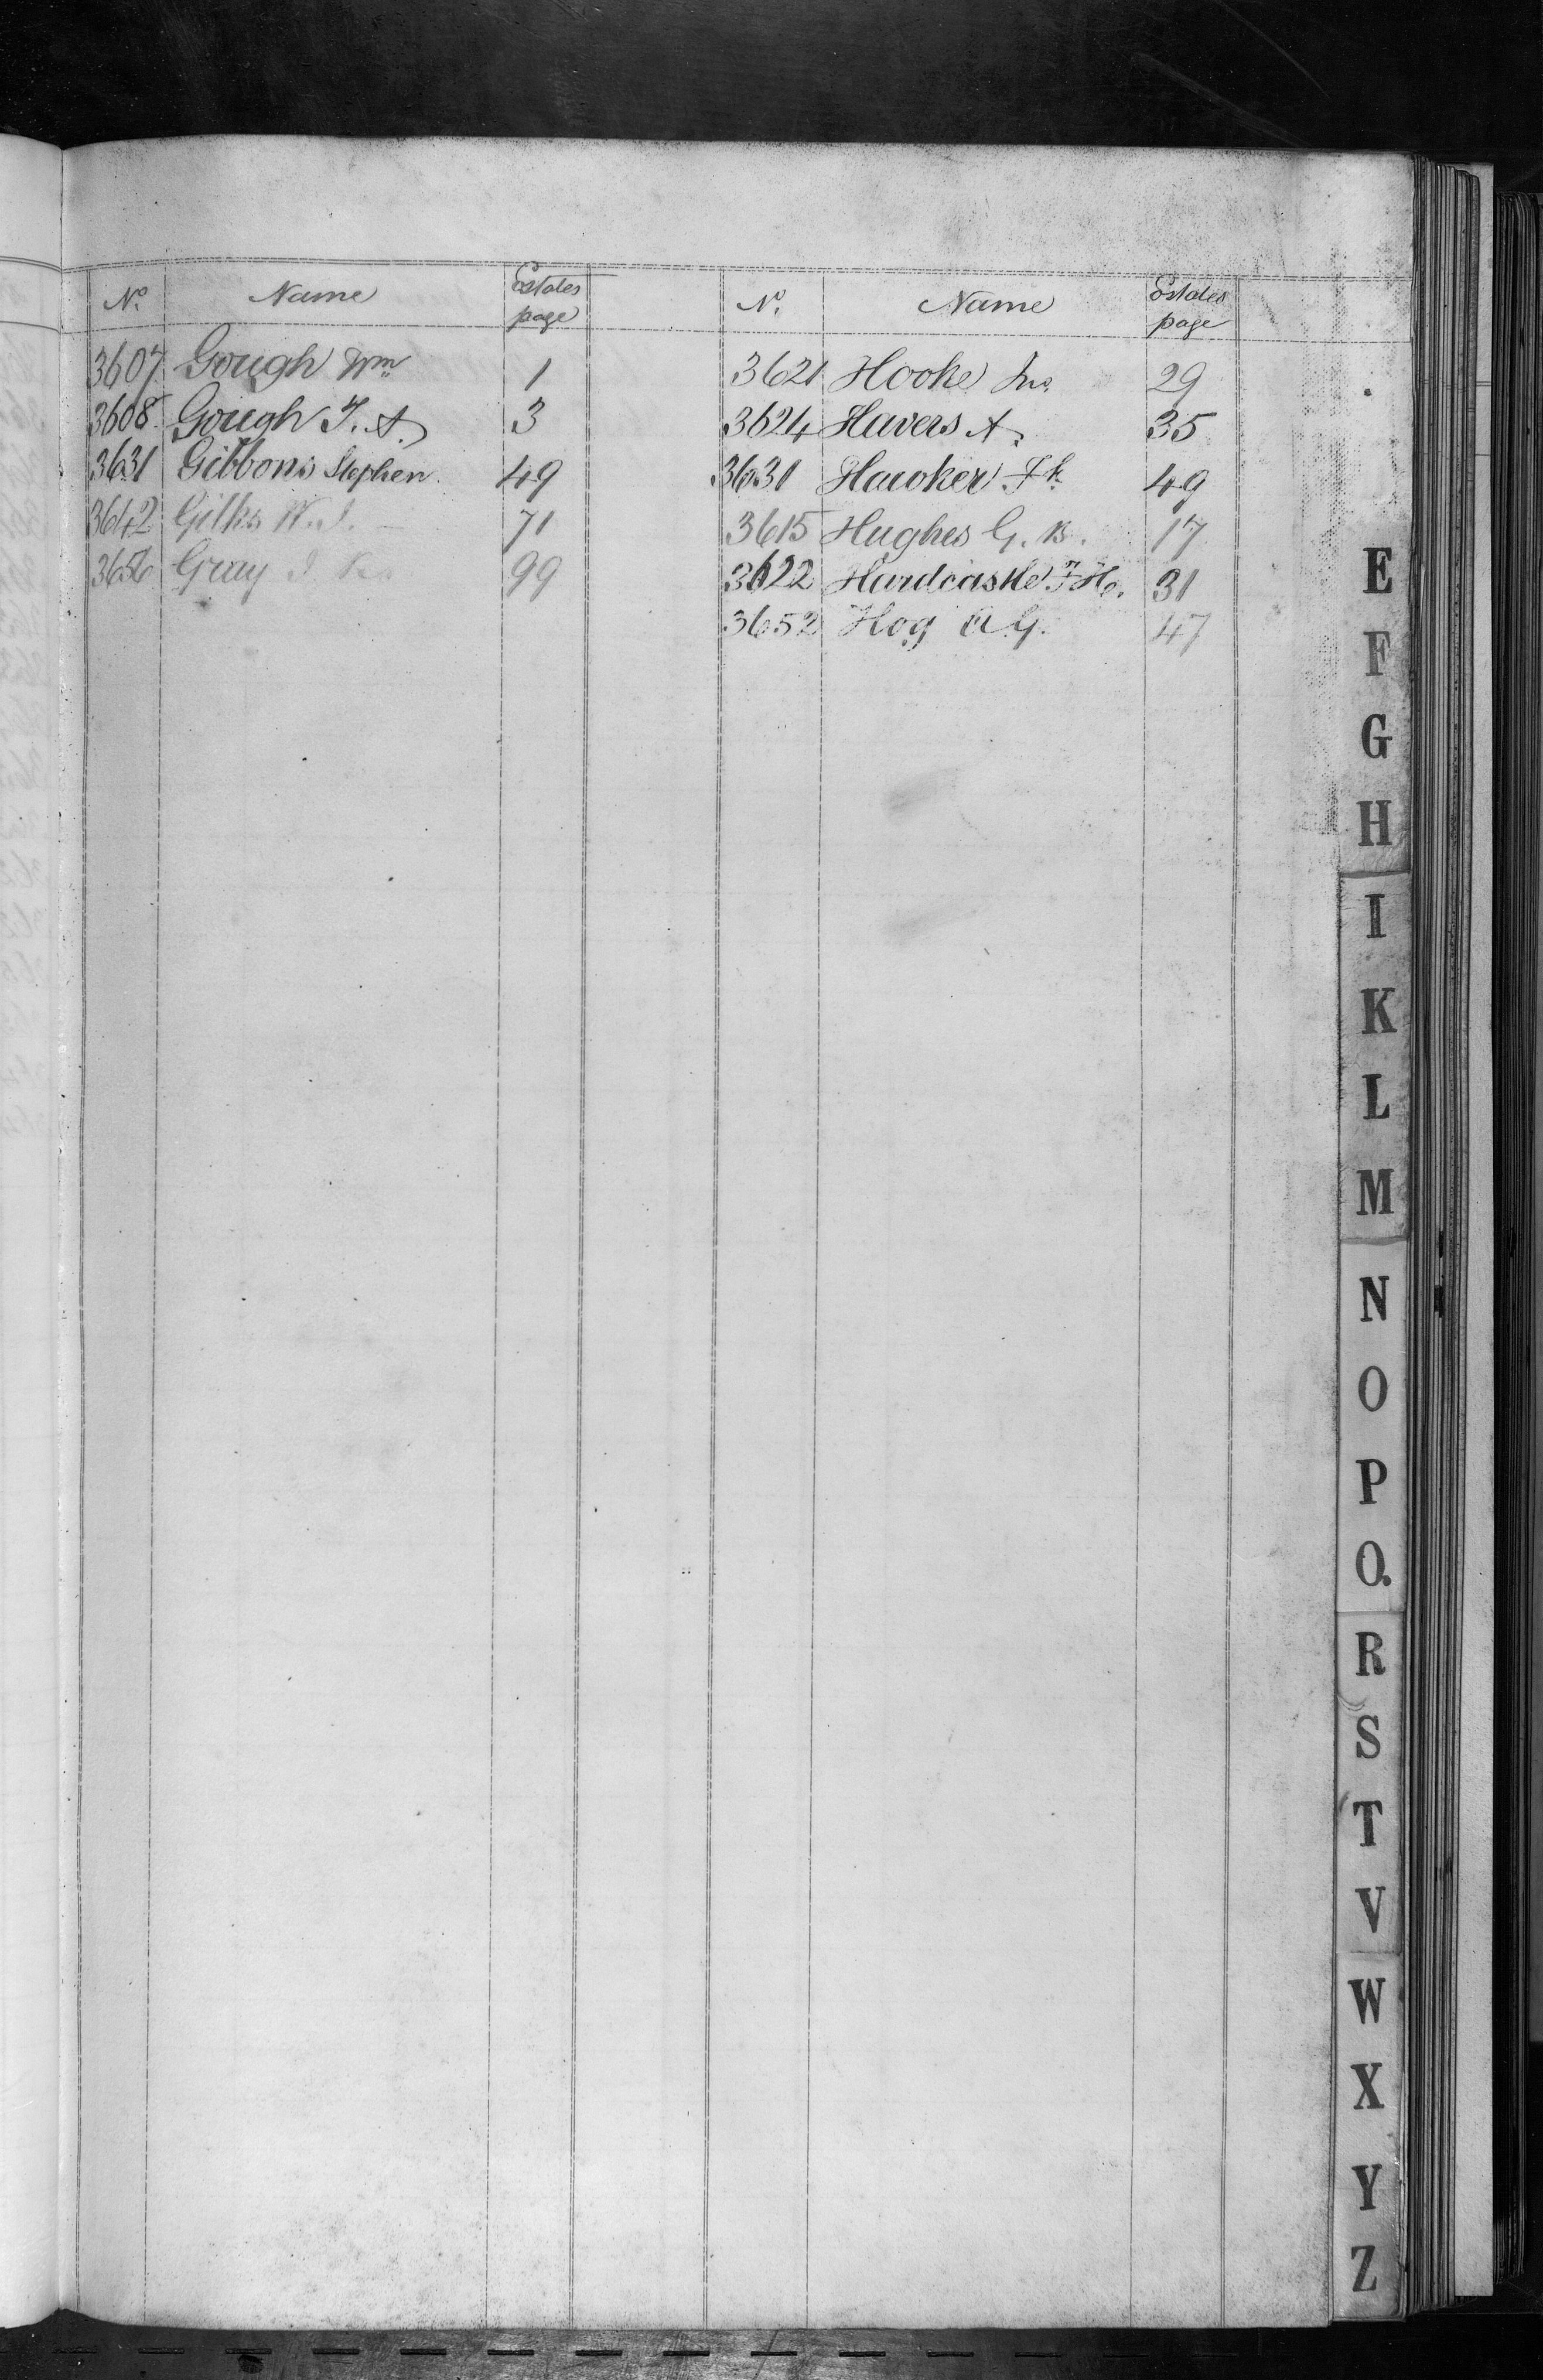 No. Name Estates page
3607 Gough Wm 1
3608 Gough T. A. 3
3631 Gibbons Stephen 49
3642 Gilks W. J. 71
3656 Gray J 99
No. Name Estates page
3621 Hooke Jno. 29
3624 Havers A. 35
3631 Hawker Fk. 49
3615 Hughes G. B. 17
3622 Hardcastle F H. 31
3652 Hog A G. 47
E
F
G
H
I
K
L
M
N
O
P
Q.
R
S
T
V
W
X
Y
Z